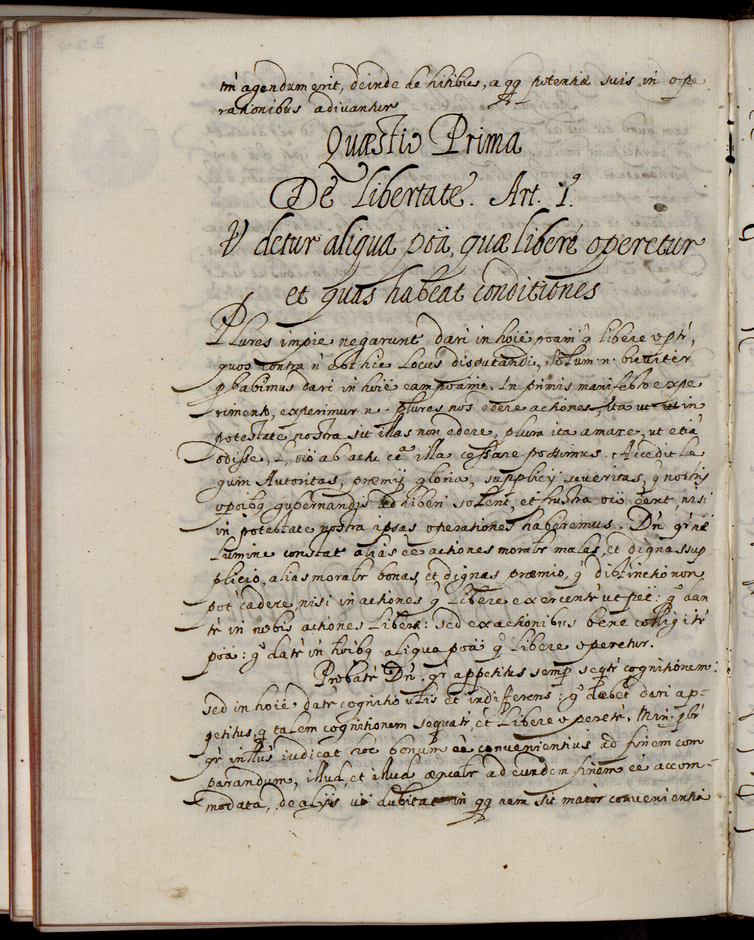 tm̄ agendum erit, deinde de hitibus, a qq potentiæ suis in ope
rationibus adivantur
Quæstio Prima
De libertate. Art. 1º.
V detur aliqua poã, quæ liberè operetur
et quas habeat conditiones
Plures impie negarunt dari in hoie poam q̃ libere optr̃,
quos contra n̄ est hic locus disputandi, solum .n. breviter
probabimus dari in hoie eam poam. In primis manifesto expe
rimento, experimur .n. plures nos edere actiones, ita ut in
potestate nostra sit illas non edere, plura ita amare, ut etiã
odisse, l, oīo ab actu cᵃ illa cessare possimus. Accedit le
gum Autoritas, præmij gloria, supplicij severitas, q̃ nostris
opoibq gubernandis adhiberi solent, et frustra oīo eẽnt, nisi
in potestate nostra ipsas operationes haberemus. Dn̄ qr̃ nãe
lumine constat alias eẽ actiones moralr̃ malas, et dignas sup
plicio, alias moralr̃ bonas, et dignas præmio, q̃ distinctio non
pot̃ cadere, nisi in actiones q̃ libere exercentr̃ ut pet: gº dan
tr̃ in nobis actiones liberæ: sed ex actionibus bene colligitr̃
poã: gº datr̃ in hoibq aliqua poã q̃ libere operetur.
Probatr̃ Dn̄. qr̃ appetitus semp seqtr̃ cognitionem:
sed in hoie datr̃ cognitio utis et indifferens: gº debet dari ap=
petitus, q talem cognitionem sequatr̃, et libere operetr̃. Min. pbr̃
qr̃ intus iudicat hoc bonum eẽ convenientius ad finem com
parandum, illud et illud æqualr̃ ad eundem finem eẽ accom-
modata, de alijs dubitat in qq nam sit maior convenientia